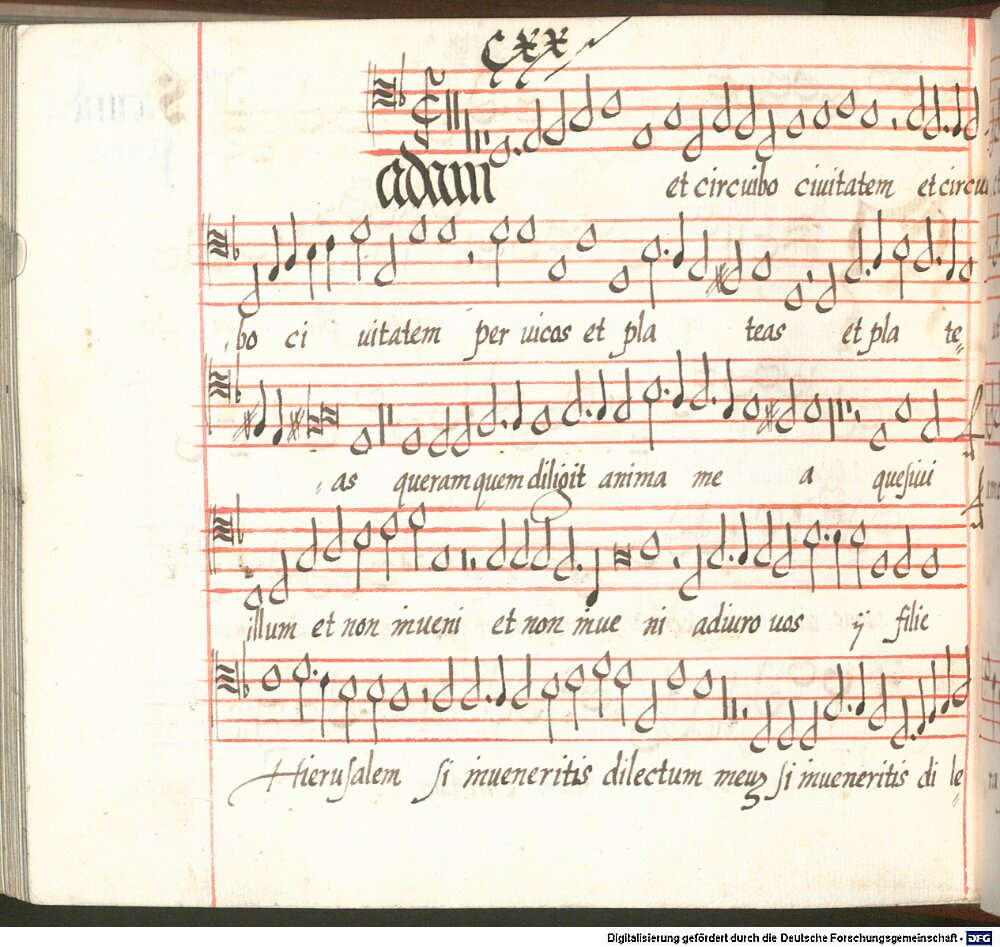 CXX
et circuibo ciuitatem et circui
bo ci uitatem per uicos et pla teas et pla te
as queram quem diligit anima me a quesiui
illum et non inueni et non inue ni adiuro uos ij filie
Hierusalem si inueneritis dilectum meuȝ si inueneritis di le
Digitalisierung gefördert durch die Deutsche Forschungsgemeinschaft - DFG